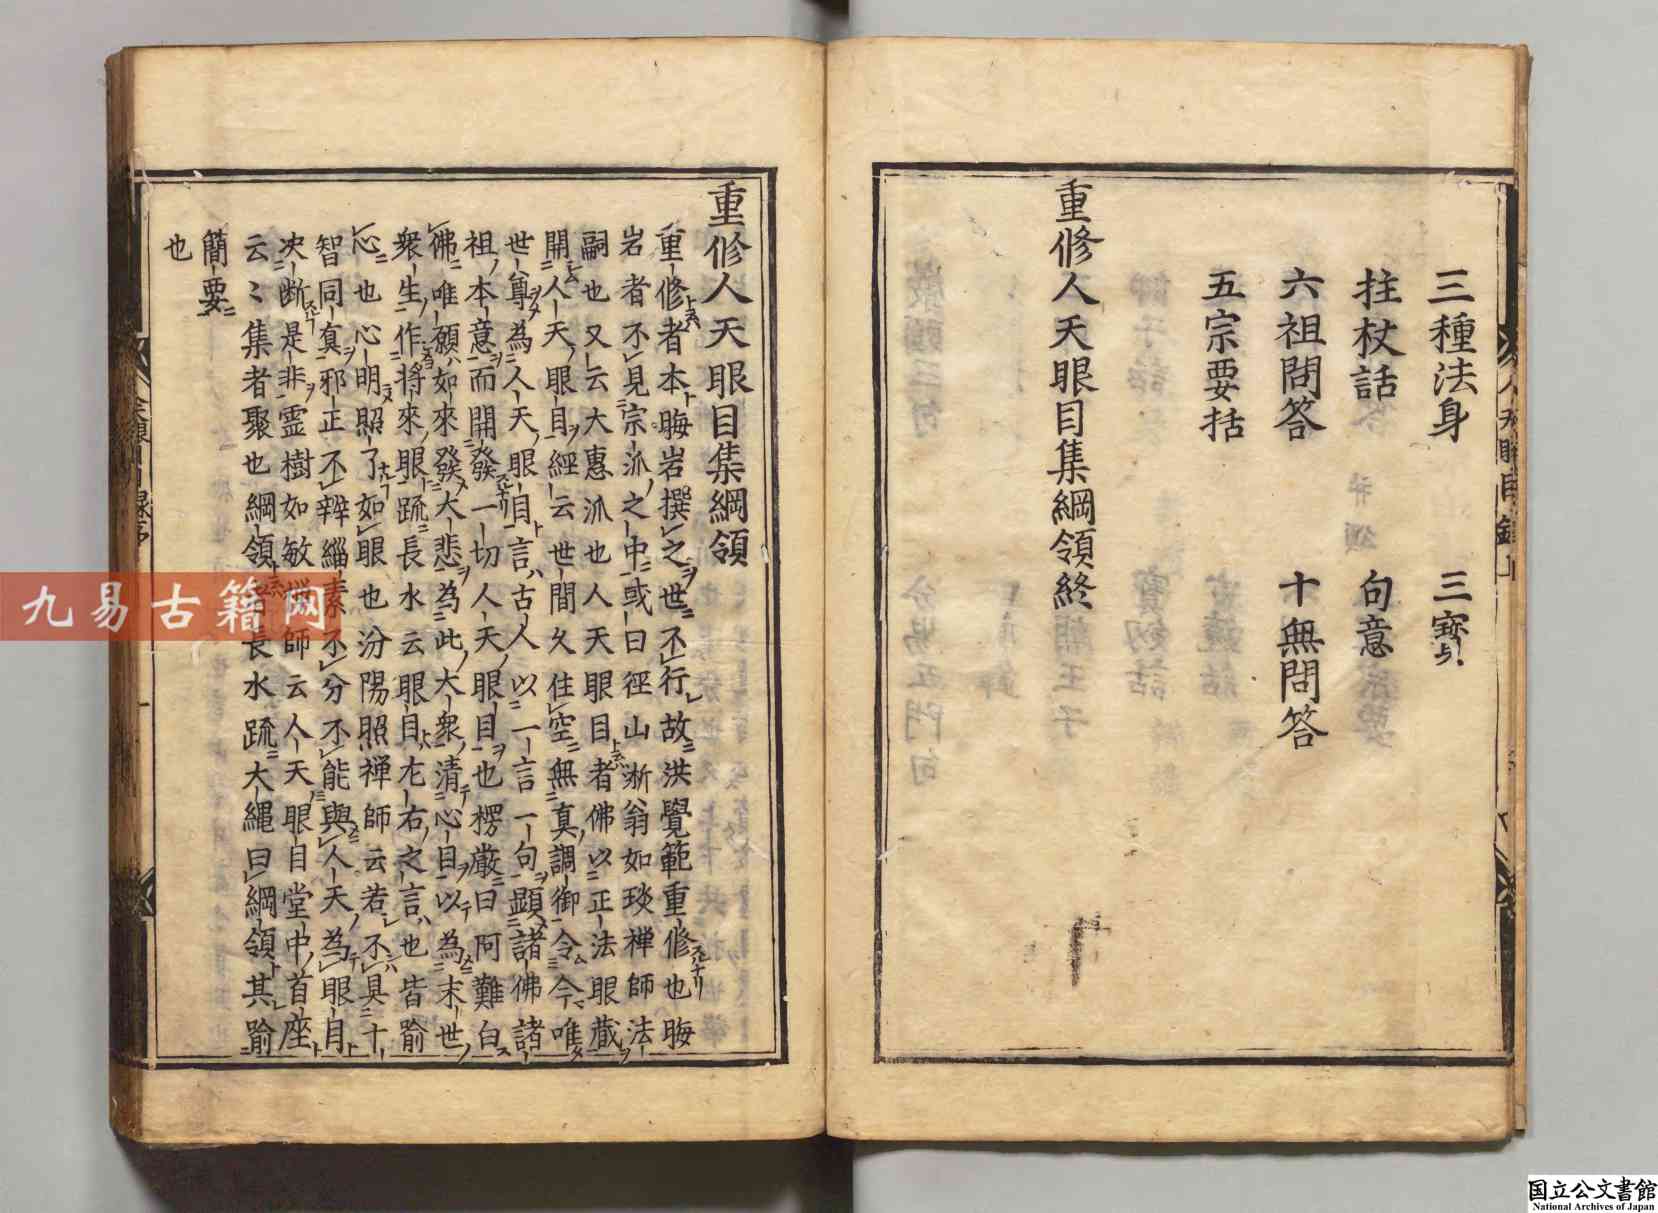 三種法身　三寳
拄杖話　句意
六祖問答　十無問答
五宗要括
重修人天眼目集綱領終
重修人天眼目集綱領
重修者本晦岩撰之世不行故洪覺範重修也晦
岩者不見宗派之中或曰徑山浙翁如琰禅師法
嗣也又云大惠派也人天眼目者佛以正法眼蔵
開人天眼目經云世間久住空無真調御令今唯
世尊為人天眼目言古人以一言一句顕諸佛諸
祖本意而開發一切人天眼目也楞嚴曰阿難白
佛唯願如來發大悲為此大衆清心目以為末世
衆生作將來眼䟽長水云眼目尢右之言也皆喻
心也心明照了如眼也汾陽照禅師云若不具十
智同真邪正不辨緇素不分不能與人天為眼目
决断是非霊樹如敏禅師云人天眼目堂中首座
云云集者聚也綱領長水䟽大繩曰綱領其喻
簡要
也
九易古籍网
国立公文書館
National Archives of Japan